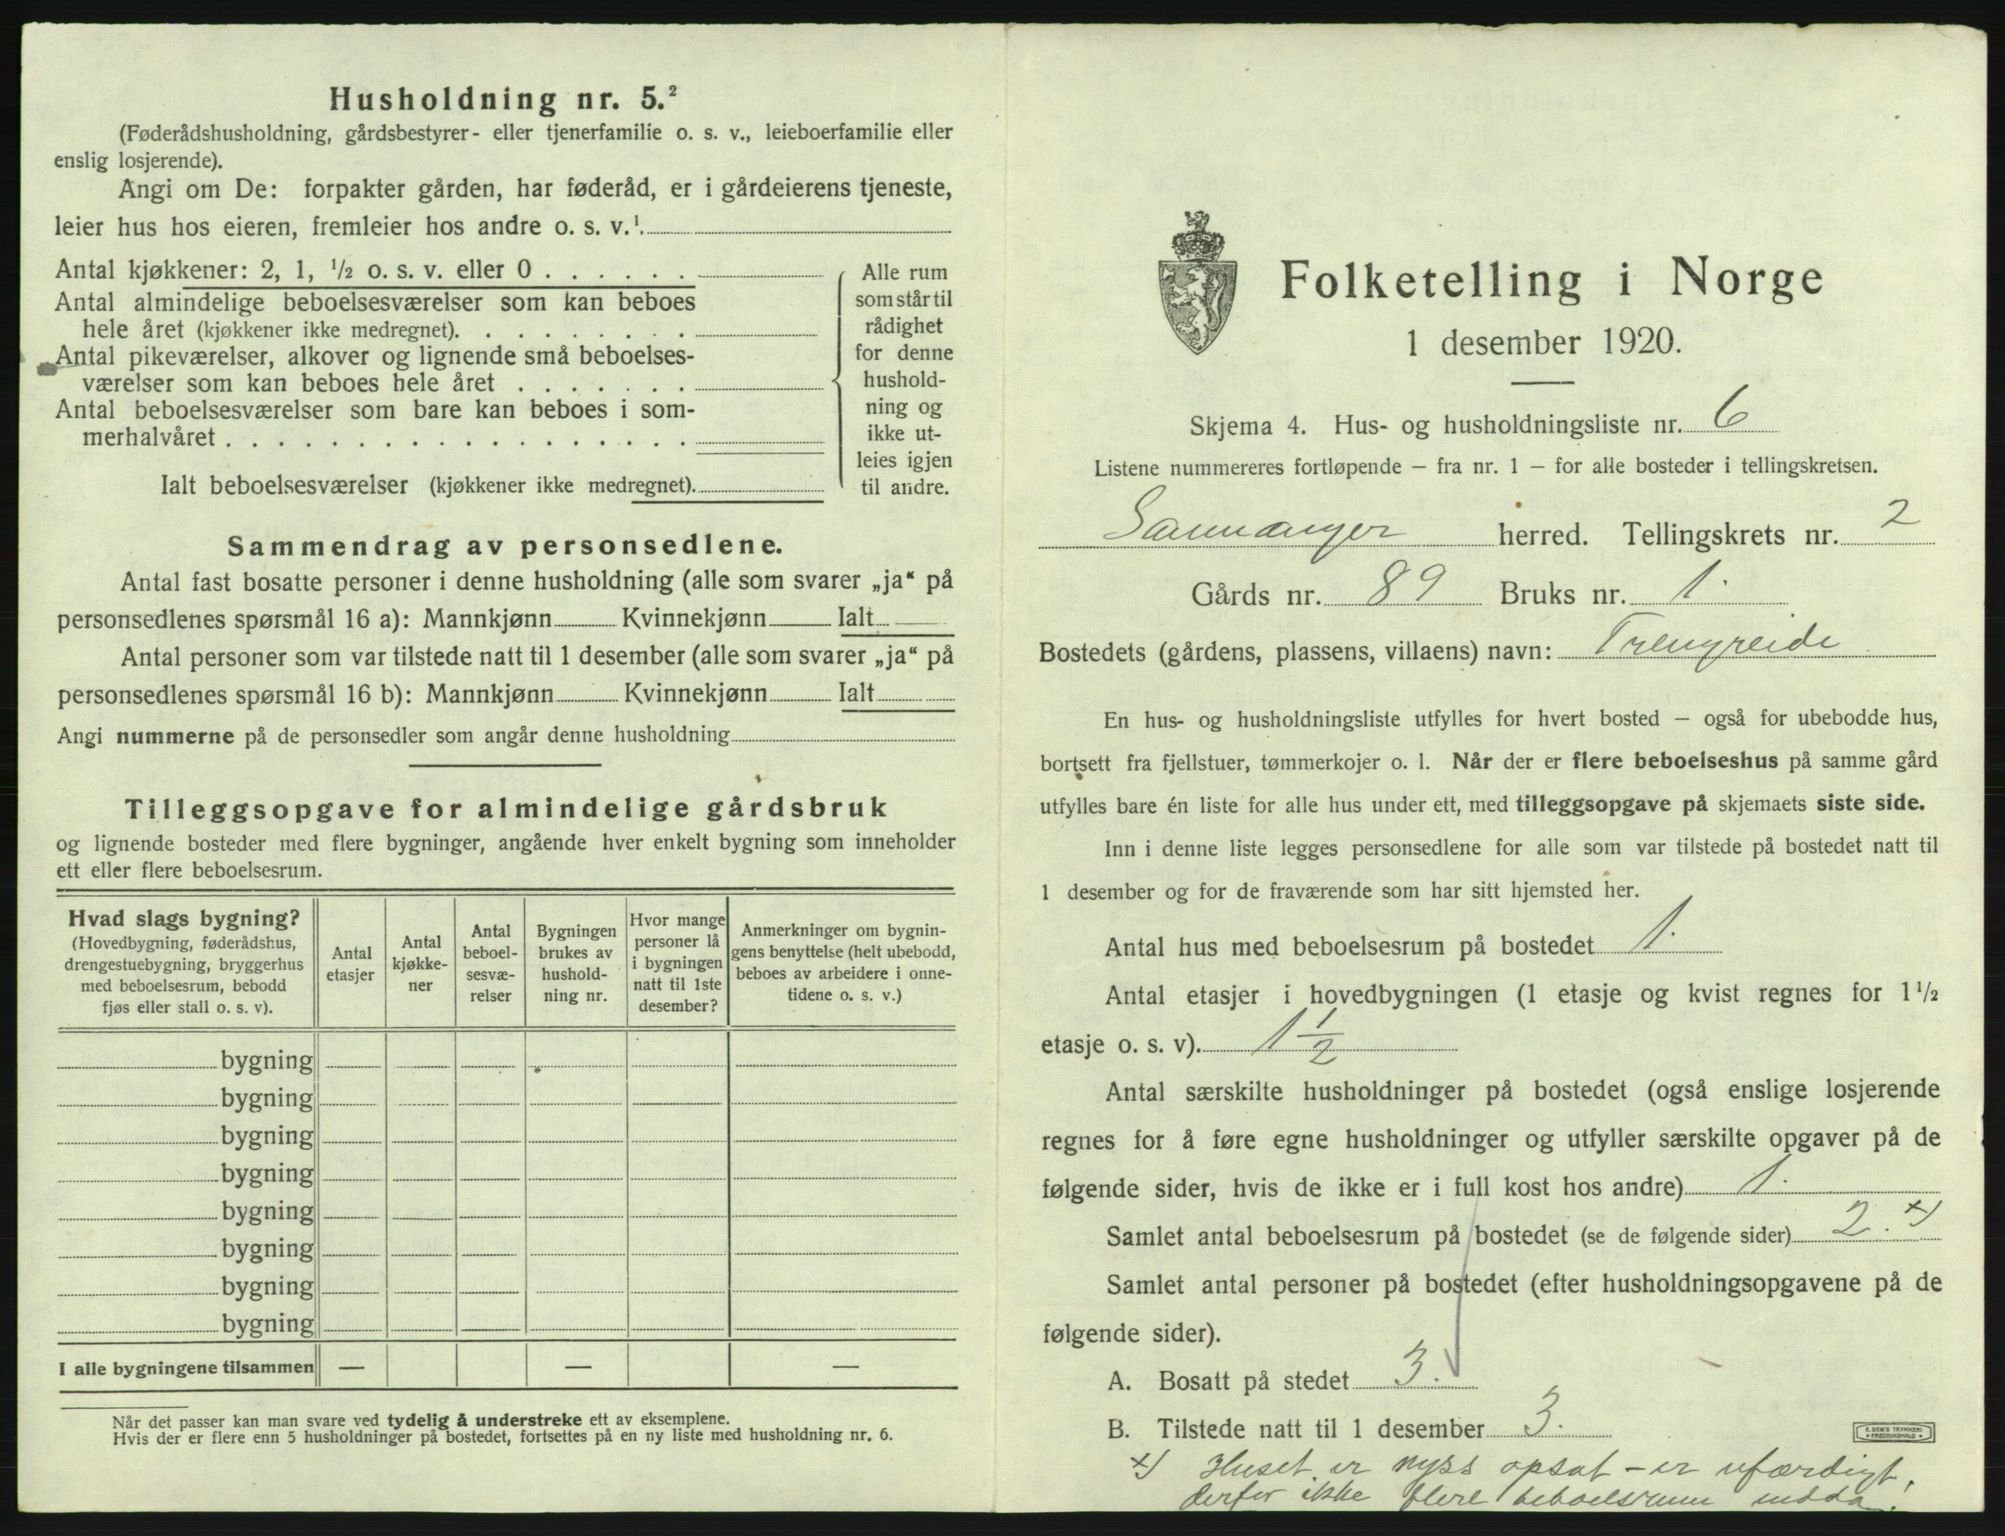 Husholdning nr. 5.²
(Føderådshusholdning, gårdsbestyrer- eller tjenerfamilie o. s. v., leieboerfamilie eller
enslig losjerende).
Angi om De: forpakter gården, har føderåd, er i gårdeierens tjeneste,
leier hus hos eieren, fremleier hos andre o. s. v.¹.
Antal kjøkkener: 2, 1, ½ o. s. v. eller 0 . . . . . .
Antal almindelige beboelsesværelser som kan beboes
hele året (kjøkkener ikke medregnet). . . . . . . . .
Antal pikeværelser, alkover og lignende små beboelses-
værelser som kan beboes hele året . . . . . . .
Antal beboelsesværelser som bare kan beboes i som-
merhalvåret . . . . . . . . . . . . . . . . . .
Ialt beboelsesværelser (kjøkkener ikke medregnet).
Alle rum
som står til
rådighet
for denne
hushold-
ning og
ikke ut-
leies igjen
til andre.
Sammendrag av personsedlene.
Antal fast bosatte personer i denne husholdning (alle som svarer „ja“ på
personsedlenes spørsmål 16 a): Mannkjønn Kvinnekjønn Ialt
Antal personer som var tilstede natt til 1 desember (alle som svarer „ja“ på
personsedlenes spørsmål 16 b): Mannkjønn Kvinnekjønn Ialt
Angi nummerne på de personsedler som angår denne husholdning
Tilleggsopgave for almindelige gårdsbruk
og lignende bosteder med flere bygninger, angående hver enkelt bygning som inneholder
ett eller flere beboelsesrum.
Hvad slags bygning?
(Hovedbygning, føderådshus,
drengestuebygning, bryggerhus
med beboelsesrum, bebodd
fjøs eller stall o. s. v).
Antal
etasjer
Antal
kjøkke-
ner
Antal
beboel-
sesvæ-
relser
Bygningen
brukes av
hushold-
ning nr.
Hvor mange
personer lå
i bygningen
natt til 1ste
desember?
Anmerkninger om bygnin-
gens benyttelse (helt ubebodd,
beboes av arbeidere i onne-
tidene o. s. v.)
bygning
bygning
bygning
bygning
bygning
bygning
bygning
bygning
I alle bygningene tilsammen — — —
Når det passer kan man svare ved tydelig å understreke ett av eksemplene.
Hvis der er flere enn 5 husholdninger på bostedet, fortsettes på en ny liste med husholdning nr. 6.
Folketelling i Norge
1 desember 1920.
Skjema 4. Hus- og husholdningsliste nr. 6
Listene nummereres fortløpende – fra nr. 1 – for alle bosteder i tellingskretsen.
Samnanger herred. Tellingskrets nr. 2
Gårds nr. 89 Bruks nr. 1.
Bostedets (gårdens, plassens, villaens) navn: Trengreide
En hus- og husholdningsliste utfylles for hvert bosted – også for ubebodde hus,
bortsett fra fjellstuer, tømmerkojer o. l. Når der er flere beboelseshus på samme gård
utfylles bare én liste for alle hus under ett, med tilleggsopgave på skjemaets siste side.
Inn i denne liste legges personsedlene for alle som var tilstede på bostedet natt til
1 desember og for de fraværende som har sitt hjemsted her.
Antal hus med beboelsesrum på bostedet 1.
Antal etasjer i hovedbygningen (1 etasje og kvist regnes for 1½
etasje o. s. v). 1½
Antal særskilte husholdninger på bostedet (også enslige losjerende
regnes for å føre egne husholdninger og utfyller særskilte opgaver på de
følgende sider, hvis de ikke er i full kost hos andre) 1.
Samlet antal beboelsesrum på bostedet (se de følgende sider) 2. x)
Samlet antal personer på bostedet (efter husholdningsopgavene på de
følgende sider).
A. Bosatt på stedet 3.
B. Tilstede natt til 1 desember 3.
E. SEM'S TRYKKERI
FREDRIKSHALD
x) Huset er nyss opsat – er ufærdigt,
derfor ikke flere beboelsesrum